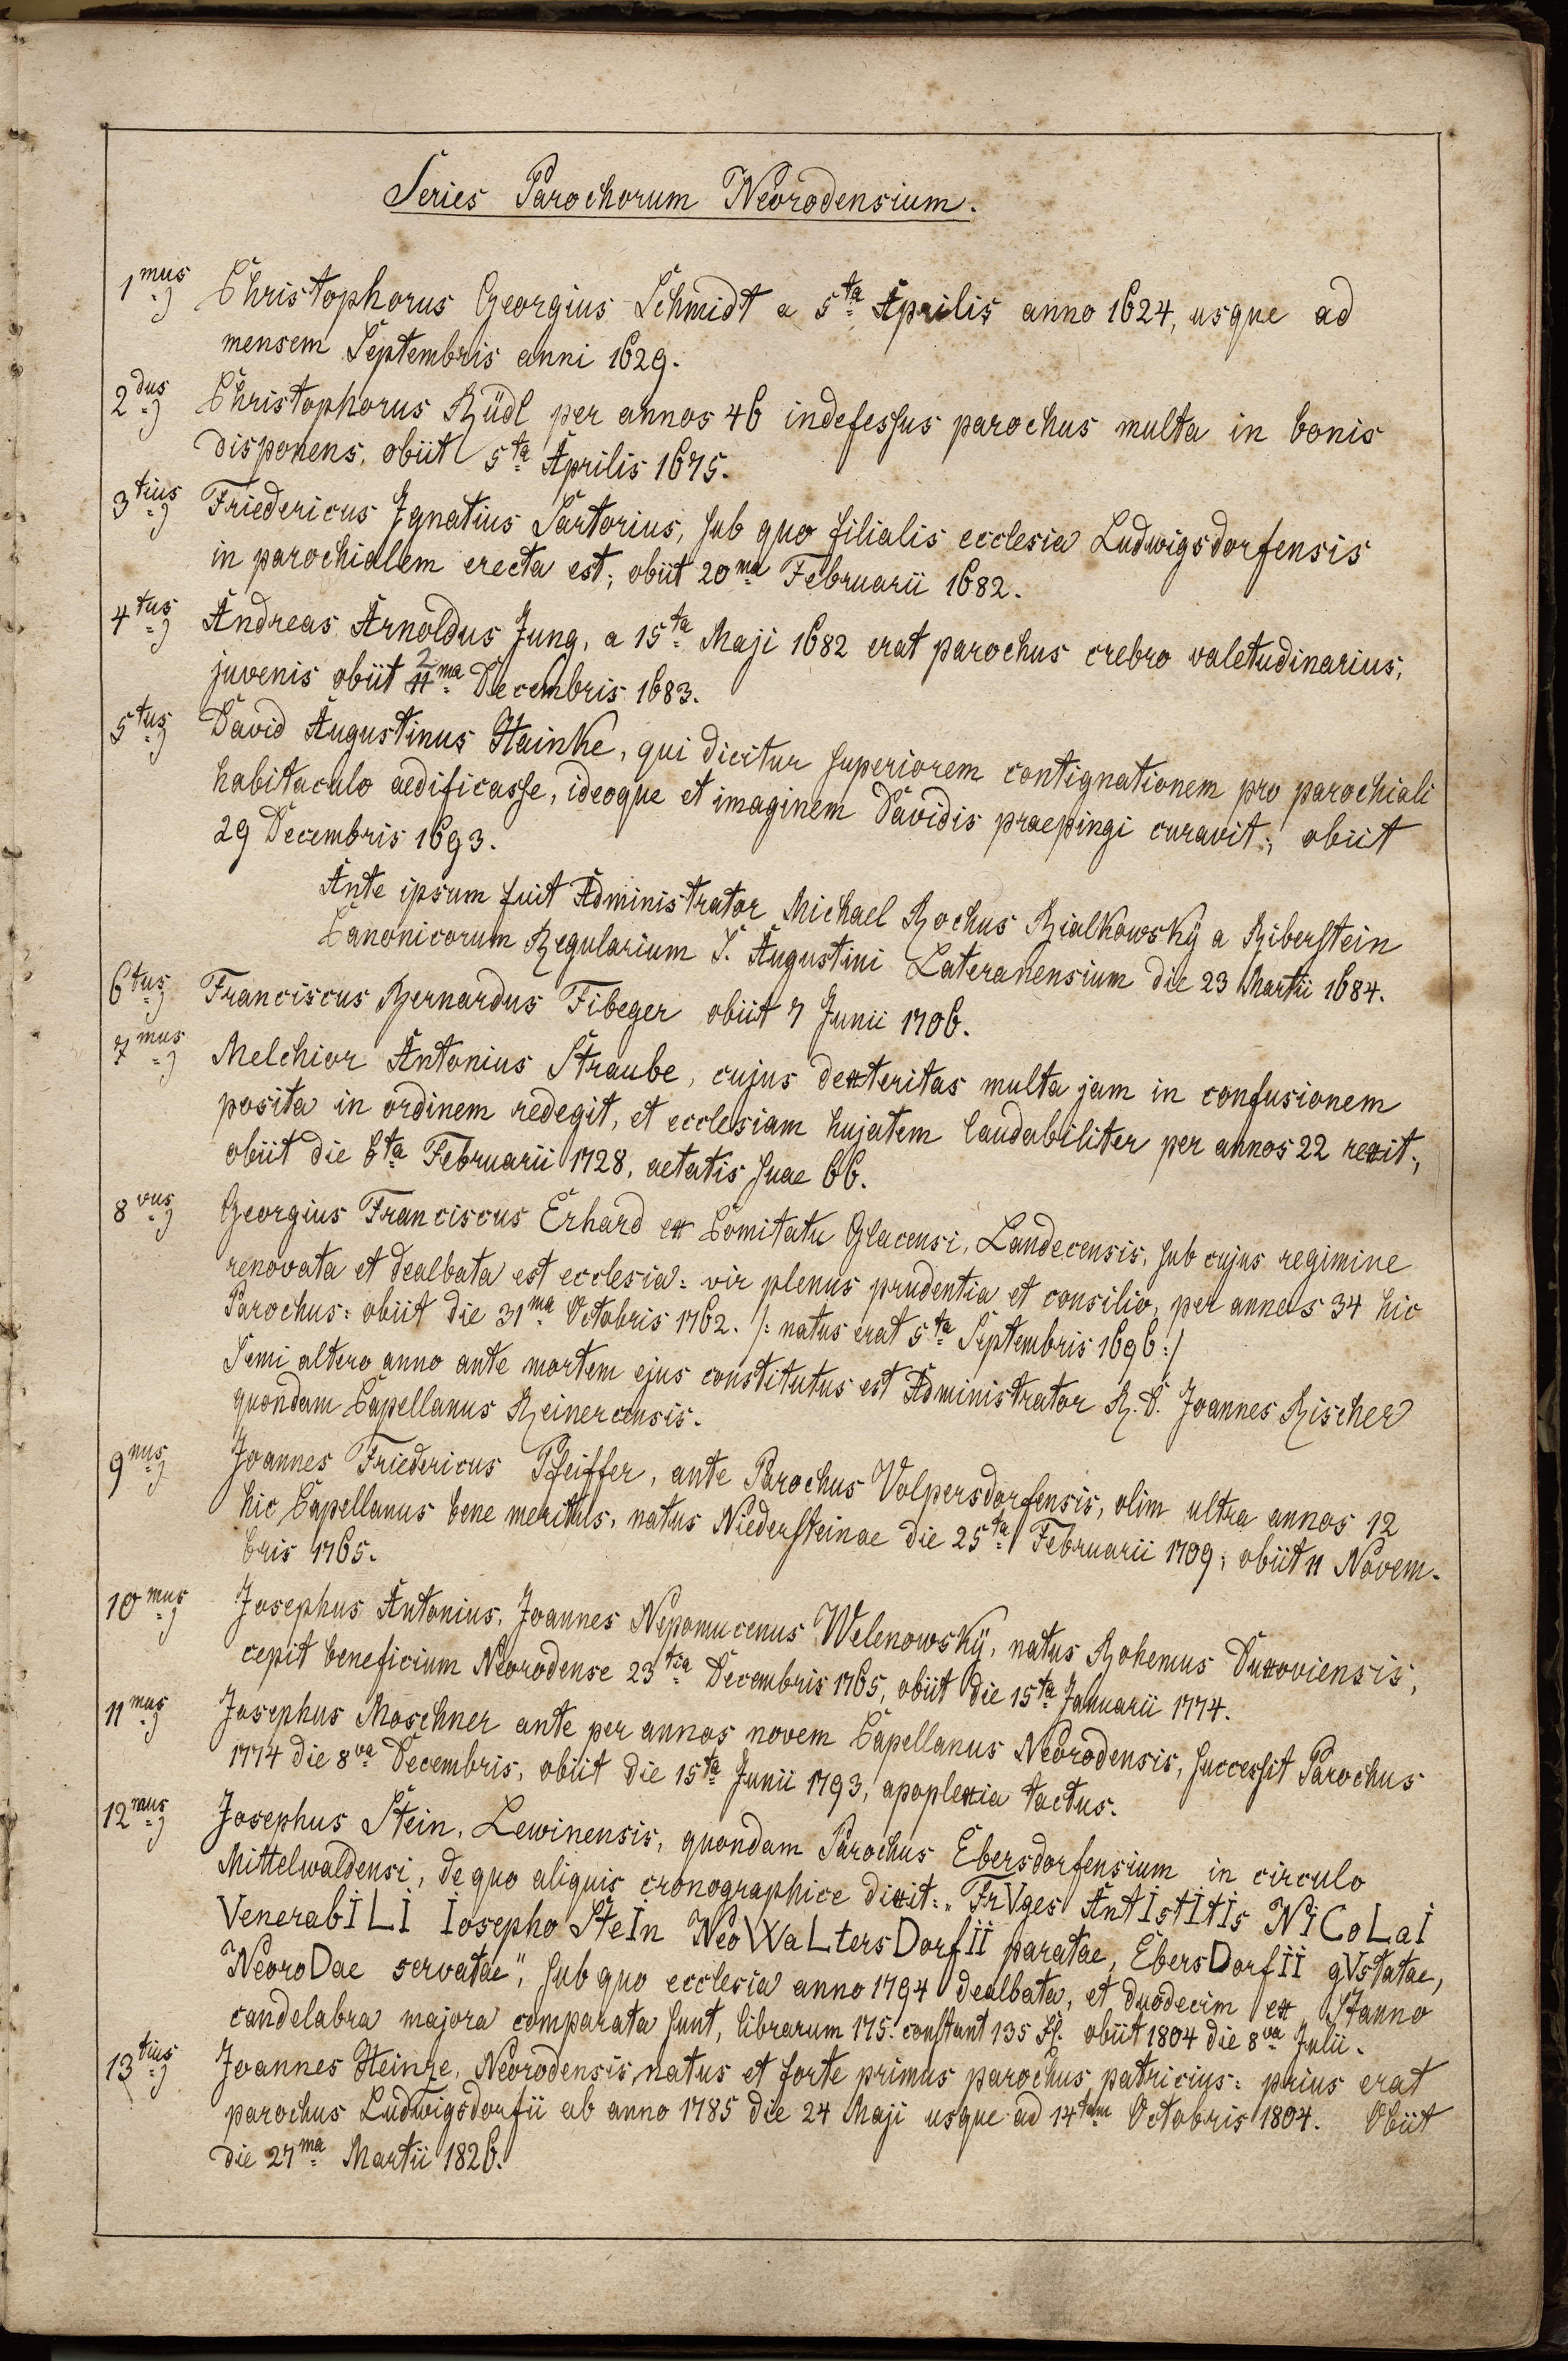 Series Parochorum Neorodensium.
1mus) Christophorus Georgius Schmidt a 5ta Aprilis anno 1624, usque ad
mensem Septembris anni 1629.
2dus) Christophorus Rüdl per annos 46 indefessus parochus multa in bonis
disponens, obiit 5ta Aprilis 1675.
3tius) Friedericus Ignatius Sartorius, sub quo filialis ecclesia Ludwigsdorfensis
in parochialem erecta est; obiit 20ma Februarii 1682.
4tus) Andreas Arnoldus Jung, a 15ta Maji 1682 erat parochus crebro valetudinarius,
juvenis obiit 2ma Decembris 1683.
5tus) David Augustinus Hainke, qui dicitur superiorem contignationem pro parochiali
habitaculo aedificasse, ideoque et imaginem Davidis praepingi curavit; obiit
29 Decembris 1693.
Ante ipsum fuit Administrator Michael Rochus Bialkowskÿ a Biberstein
Canonicorum Regularium S. Augustini Lateranensium die 23 Martii 1684.
6tus) Franciscus Bernardus Fibeger obiit 7 Junii 1706.
7mus) Melchior Antonius Straube, cujus dexteritas multa jam in confusionem
posita in ordinem redegit, et ecclesiam hujatem laudabiliter per annos 22 rexit;
obiit die 6ta Februarii 1728, aetatis suae 66.
8vus) Georgius Franciscus Erhard ex Comitatu Glacensi, Landecensis, sub cujus regimine
renovata et dealbata est ecclesia: vir plenus prudentia et consilio, per annos 34 hic
Parochus: obiit die 31ma Octobris 1762. /: natus erat 5ta Septembris 1696 :/
Semi altero anno ante mortem ejus constitutus est Administrator R. D. Joannes Rischer
quondam Capellanus Reinercensis.
9nus) Joannes Friedericus Pfeiffer, ante Parochus Volpersdorfensis, olim ultra annos 12
hic Capellanus bene meritus, natus Niedersteinae die 25ta Februarii 1709; obiit 11 Novem-
bris 1765.
10mus) Josephus Antonius, Joannes Nepomucenus Welenowskÿ, natus Bohemus Duxoviensis,
cepit beneficium Neorodense 23tia Decembris 1765, obiit die 15ta Januarii 1774.
11mus) Josephus Moschner ante per annos novem Capellanus Neorodensis, successit Parochus
1774 die 8va Decembris, obiit die 15ta Junii 1793, apoplexia tactus.
12mus) Josephus Stein, Lewinensis, quondam Parochus Ebersdorfensium in circulo
Mittelwaldensi, de quo aliquis cronographice dixit: „FrVges AntIstItIs NICoLaI
VenerabILI Iosepho SteIn NeoWaLtersDorfII paratae, EbersDorfII gVstatae,
NeoroDae servatae", sub quo ecclesia anno 1794 dealbata, et duodecim ex stanno
candelabra majora comparata sunt, librarum 175. constant 135 fl. obiit 1804 die 8va Julii.
13tius) Joannes Heinze, Neorodensis natus et forte primus parochus patricius: prius erat
parochus Ludwigsdorfii ab anno 1785 die 24 Maji usque ad 14tam Octobris 1804. Obiit
die 27ma Martii 1826.